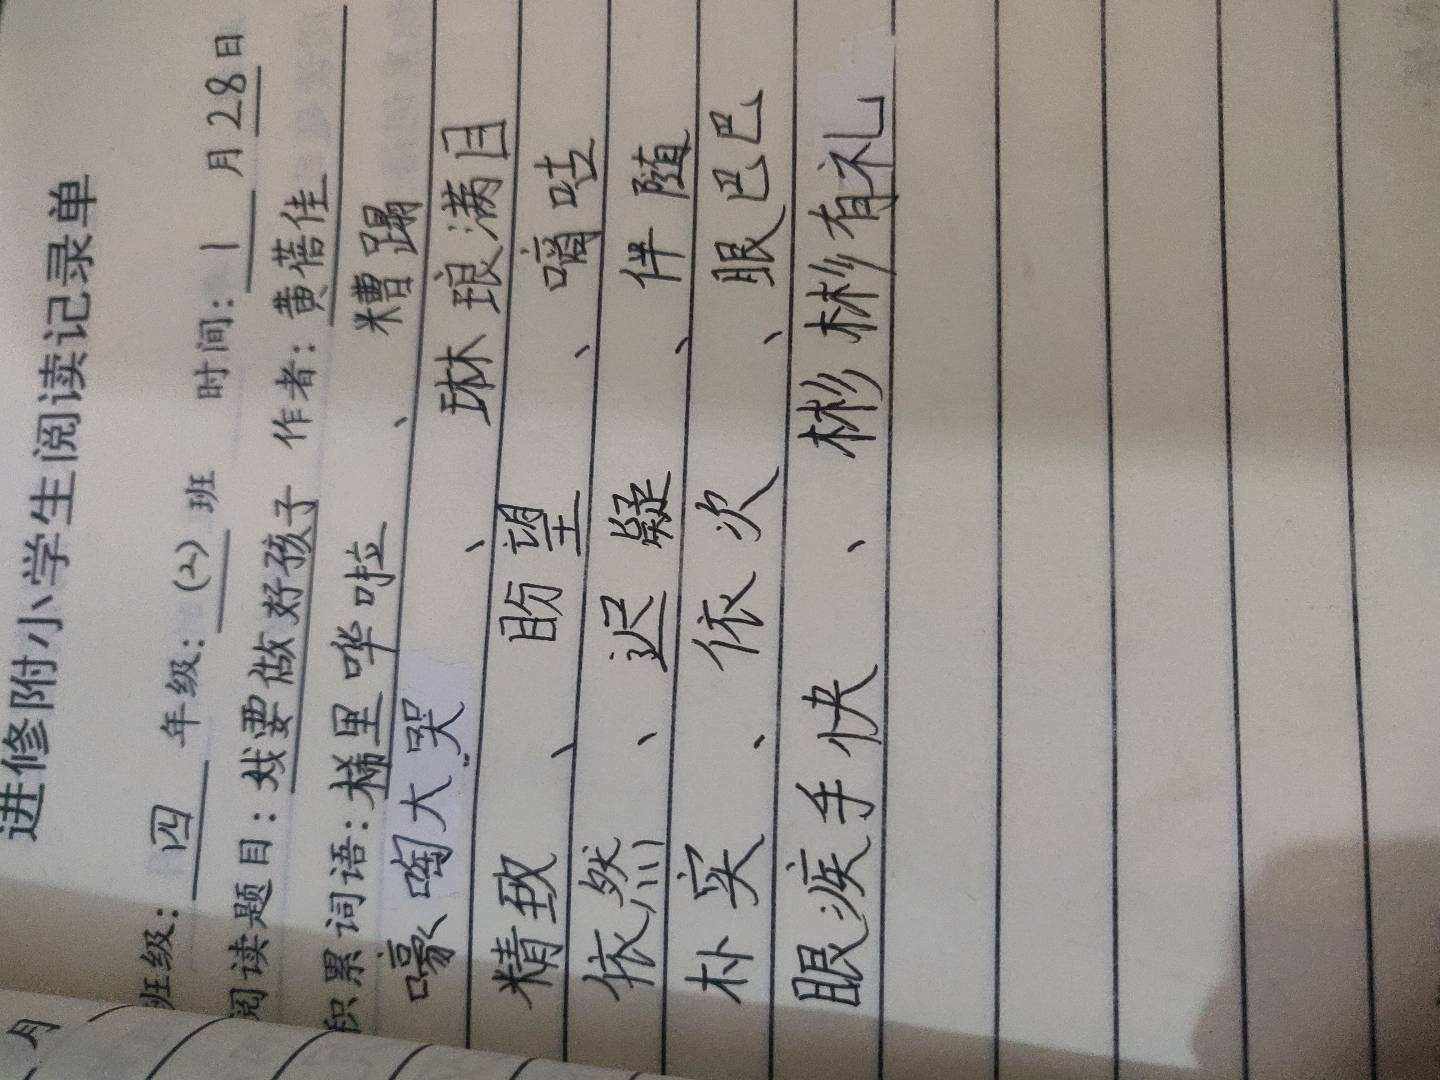 进修附小学生阅读记录单
班级: 四 年级: (2) 班 时间: 1 月 28 日
阅读题目: 我要做好孩子 作者: 黄蓓佳
积累词语: 稀里哗啦、糟蹋
嚎啕大哭、琳琅满目
精致、盼望、嘀咕
依然、迟疑、伴随
朴实、依次、眼巴巴
眼疾手快、彬彬有礼
月